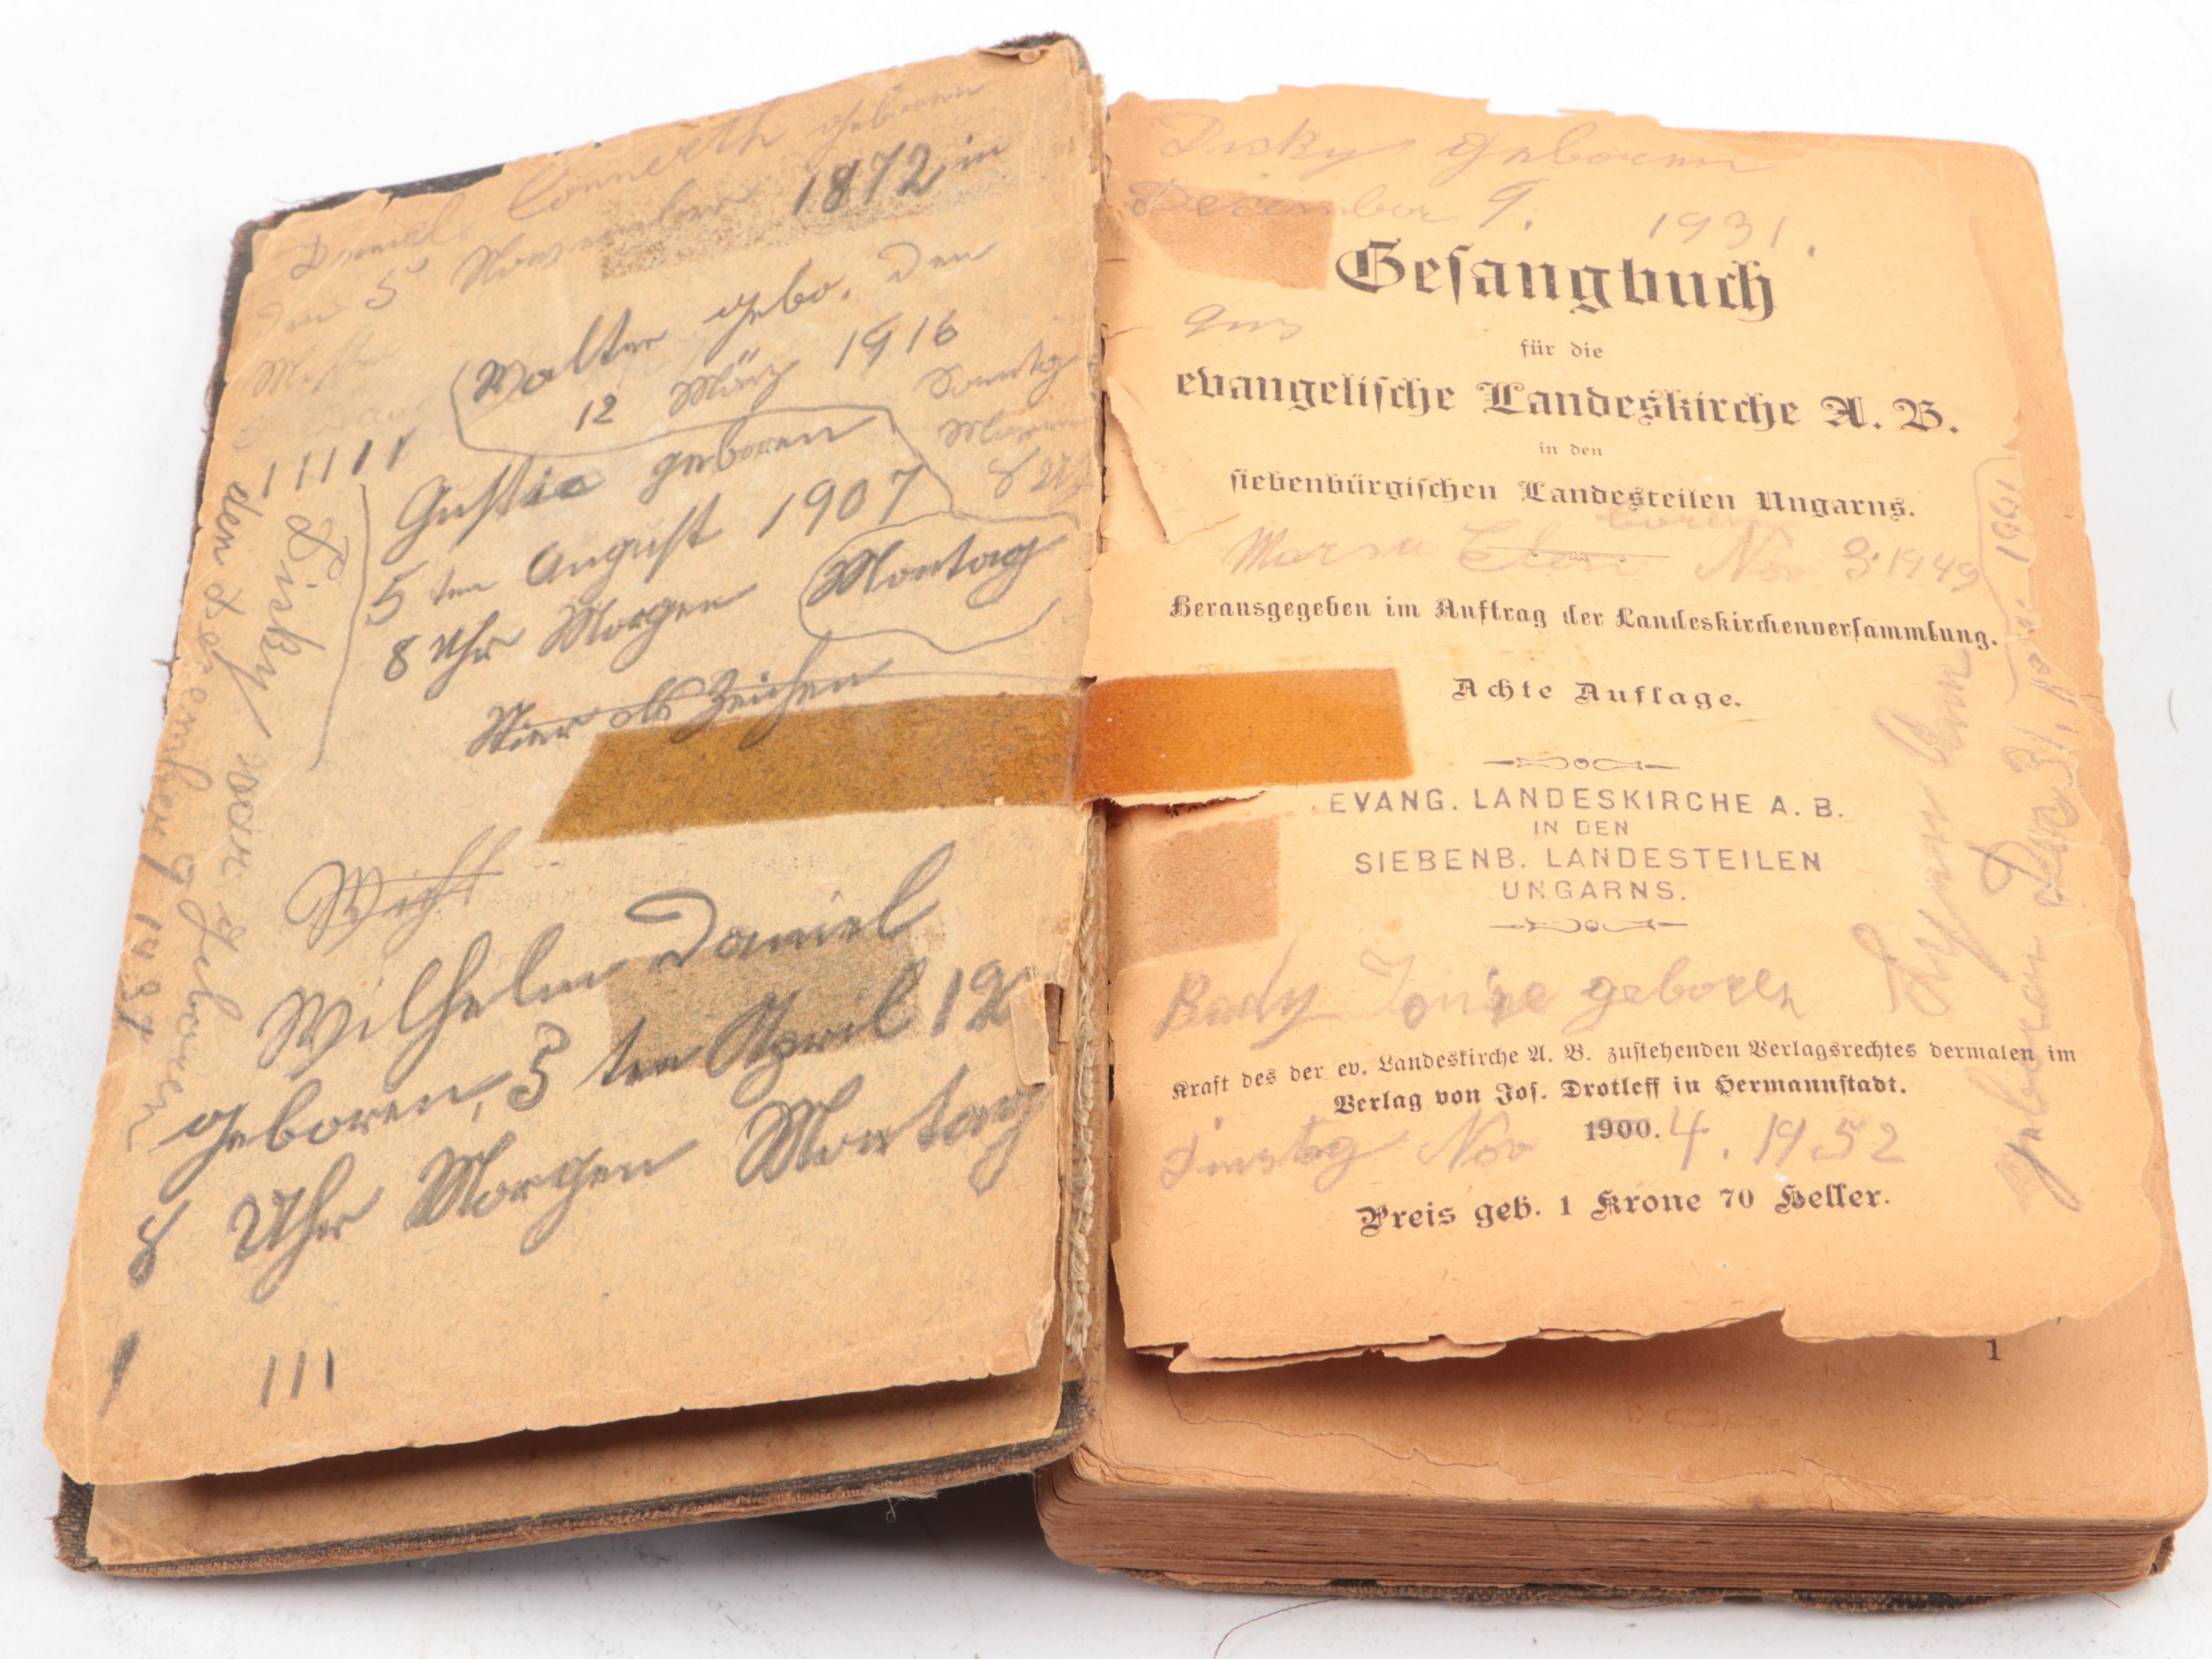 Daniel Connerth geboren
den 5 November 1872 in
Walter gebo. den
12 März 1916
Sonntag
Morgen
8 Uhr
11111
Gustie geboren
5 ten August 1907
8 Uhr Morgen Montag
Stier als Zeichen
Disky war geboren
den December 9 1931
Wilhelm Daniel
geboren, 5 ten April 19
8 Uhr Morgen Montag
1 111
Disky geboren
December 9. 1931.
Gesangbuch
für die
evangelische Landeskirche A. B.
in den
siebenbürgischen Landesteilen Ungarns.
Nov 3. 1949
Herausgegeben im Auftrag der Landeskirchenversammlung.
Achte Auflage.
EVANG. LANDESKIRCHE A. B.
IN DEN
SIEBENB. LANDESTEILEN
UNGARNS.
Bady geboren
Kraft des der ev. Landeskirche A. B. zustehenden Verlagsrechtes dermalen im
Verlag von Jos. Drotleff in Hermannstadt.
1900.
Dinstag Nov 4. 1952
Preis geb. 1 Krone 70 Heller.
Lynn Ann
geboren Dec 31.
1